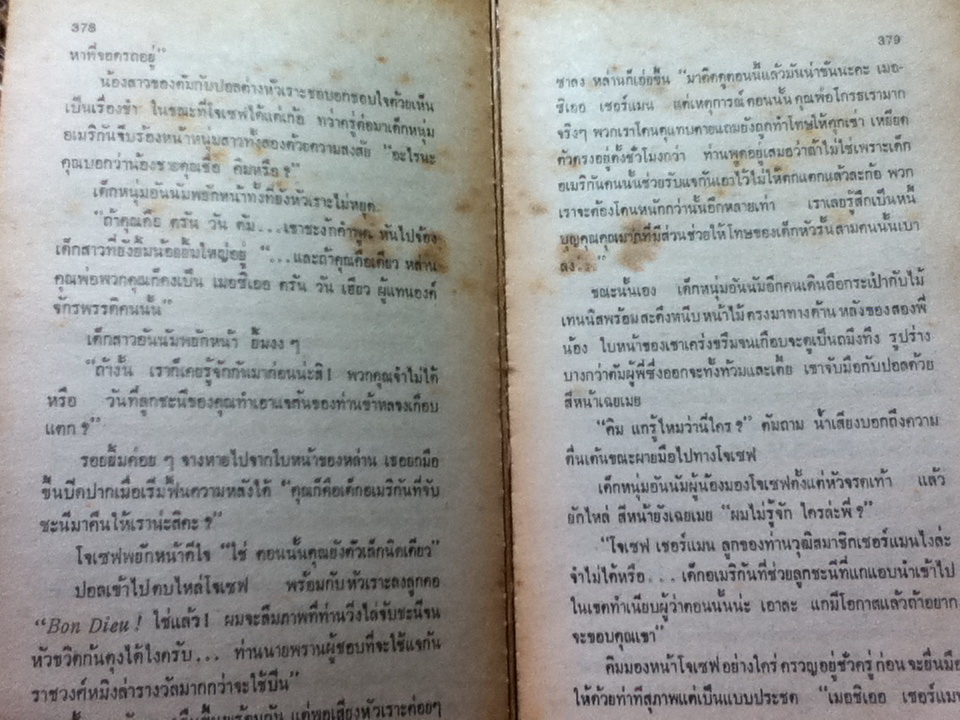 378
หาที่จอดรถอยู่"
น้องสาวของดัมกับปอลต่างหัวเราะชอบอกชอบใจด้วยเห็น
เป็นเรื่องขำ ในขณะที่โจเซฟได้แต่เก้อ ทว่าครู่ต่อมาเด็กหนุ่ม
อเมริกันจึงร้องหน้าหนุ่มสาวทั้งสองด้วยความสงสัย "อะไรนะ
คุณบอกว่าน้องชายคุณชื่อ คิมหรือ?"
เด็กหนุ่มอันนัมพยักหน้าทั้งที่ยังหัวเราะไม่หยุด
"ถ้าคุณคือ ตรัน วัน ดัม...เขาชะงักคำพูด หันไปจ้อง
เด็กสาวที่ยังยิ้มน้อยยิ้มใหญ่อยู่ "...และถ้าคุณคือเดียว หล่าน
คุณพ่อพวกคุณก็คงเป็น เมอซิเออ ตรัน วัน เฮียว ผู้แทนองค์
จักรพรรดิคนนั้น"
เด็กสาวอันนัมพยักหน้า ยิ้มงง ๆ
"ถ้างั้น เราก็เคยรู้จักกันมาก่อนน่ะสิ! พวกคุณจำไม่ได้
หรือ วันที่ลูกชะนีของคุณทำเอาแจกันของท่านข้าหลวงเกือบ
แตก?"
รอยยิ้มค่อย ๆ จางหายไปจากใบหน้าของหล่าน เธอยกมือ
ขึ้นปิดปากเมื่อเริ่มฟื้นความหลังได้ "คุณก็คือเด็กอเมริกันที่จับ
ชะนีมาคืนให้เราน่ะสิคะ?"
โจเซฟพยักหน้าดีใจ "ใช่ ตอนนั้นคุณยังตัวเล็กนิดเดียว"
ปอลเข้าไปตบไหล่โจเซฟ พร้อมกับหัวเราะลงลูกคอ
"Bon Dieu! ใช่แล้ว! ผมจะลืมภาพที่ท่านวิ่งไล่จับชะนีจน
หัวขวิดก้นตุงได้ไงครับ... ท่านนายพรานผู้ชอบที่จะใช้แจกัน
ราชวงศ์หมิงล่ารางวัลมากกว่าจะใช้ปืน"
379
ซาลง หล่านก็เอ่ยขึ้น "มาคิดดูตอนนี้แล้วมันน่าขันนะคะ เมอ-
ซิเออ เชอร์แมน แต่เหตุการณ์ตอนนั้น คุณพ่อโกรธเรามาก
จริงๆ พวกเราโดนดุแทบตายแถมยังถูกทำโทษให้คุกเข่า เหยียด
ตัวตรงอยู่ตั้งชั่วโมงกว่า ท่านพูดอยู่เสมอว่าถ้าไม่ใช่เพราะเด็ก
อเมริกันคนนั้นช่วยรับแจกันเอาไว้ไม่ให้ตกแตกแล้วละก้อ พวก
เราจะต้องโดนหนักกว่านั้นอีกหลายเท่า เราเลยรู้สึกเป็นหนี้
บุญคุณคุณมากที่มีส่วนช่วยให้โทษของเด็กหัวรั้นสามคนนั้นเบา
ลง..."
ขณะนั้นเอง เด็กหนุ่มอันนัมอีกคนเดินถือกระเป๋ากับไม้
เทนนิสพร้อมสะดึงหนีบหน้าไม้ตรงมาทางด้านหลังของสองพี่
น้อง ใบหน้าของเขาเคร่งขรึมจนเกือบจะดูเป็นถมึงทึง รูปร่าง
บางกว่าดัมผู้พี่ซึ่งออกจะทั้งท้วมและเตี้ย เขาจับมือกับปอลด้วย
สีหน้าเฉยเมย
"คิม แกรู้ไหมว่านี่ใคร?" ดัมถาม น้ำเสียงบอกถึงความ
ตื่นเต้นขณะผายมือไปทางโจเซฟ
เด็กหนุ่มอันนัมผู้น้องมองโจเซฟตั้งแต่หัวจรดเท้า แล้ว
ยักไหล่ สีหน้ายังเฉยเมย "ผมไม่รู้จัก ใครล่ะพี่?"
"โจเซฟ เชอร์แมน ลูกของท่านวุฒิสมาชิกเชอร์แมนไงล่ะ
จำไม่ได้หรือ... เด็กอเมริกันที่ช่วยลูกชะนีที่แกแอบนำเข้าไป
ในเขตทำเนียบผู้ว่าตอนนั้นน่ะ เอาละ แกมีโอกาสแล้วถ้าอยาก
จะขอบคุณเขา"
คิมมองหน้าโจเซฟอย่างใคร่ครวญอยู่ชั่วครู่ ก่อนจะยื่นมือ
ให้ด้วยท่าทีสุภาพแต่เป็นแบบประชด "เมอซิเออ เชอร์แมน